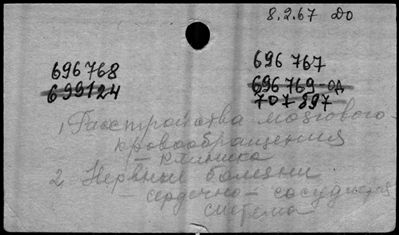 8.2.67 До
696768
699124
696 767
696 769-од
707 897
1, Расстройства мозгового
кровообращения
- клиника
2. Нервные болезни
- сердечно-сосудистая
система